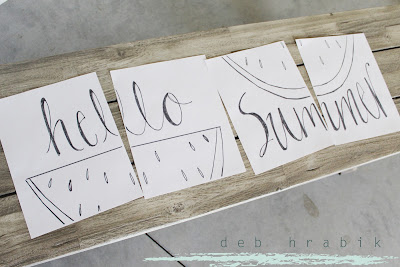 hello
Summer
deb hrabik